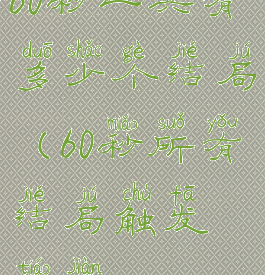 60秒一共有
duō shǎo gè jié jú
多少个结局
miǎo suǒ yǒu
(60秒所有
jié jú chù fā
结局触发
tiáo jiàn